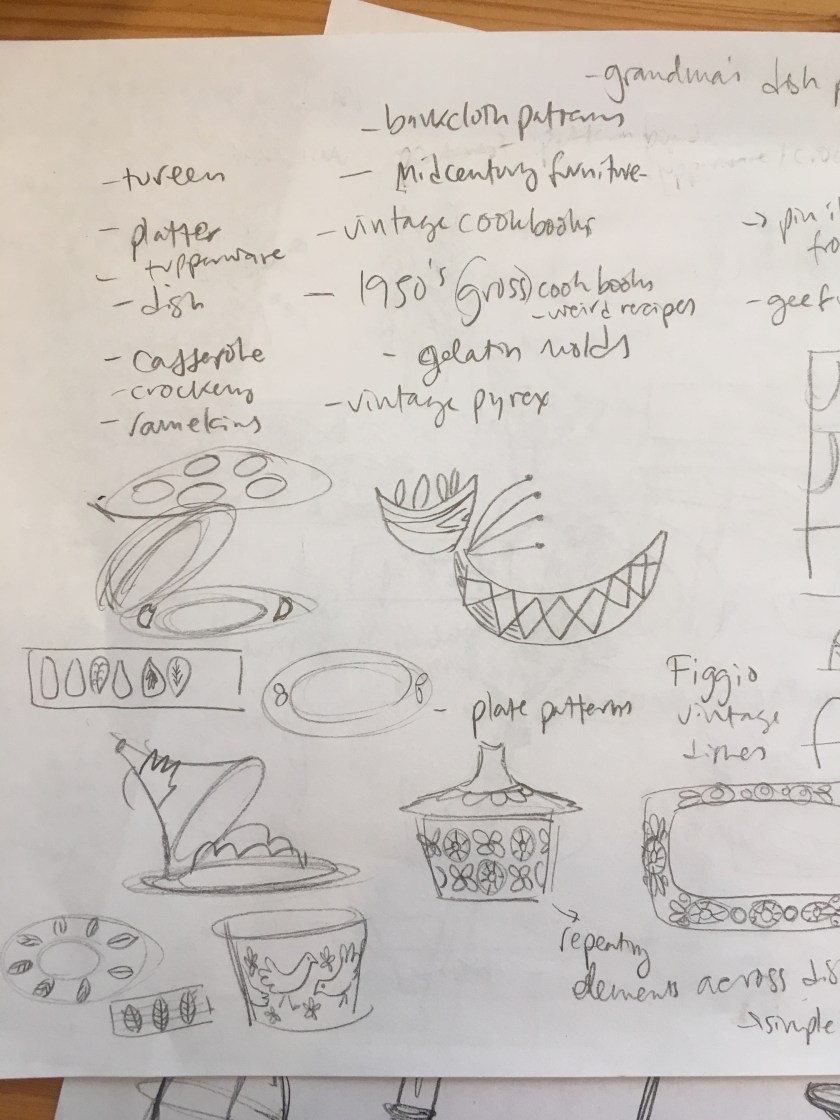 - grandma's dish
- barkcloth patterns
- Midcentury furniture
- vintage cookbooks
- 1950's (gross) cook books
- weird recipes
- gelatin molds
- vintage pyrex
- tureen
- platter
- tupperware
- dish
- casserole
- crockery
- ramekins
→ pin
- geef
- plate patterns
Figgio
vintage
dishes
→ repeating
elements across
→ simple